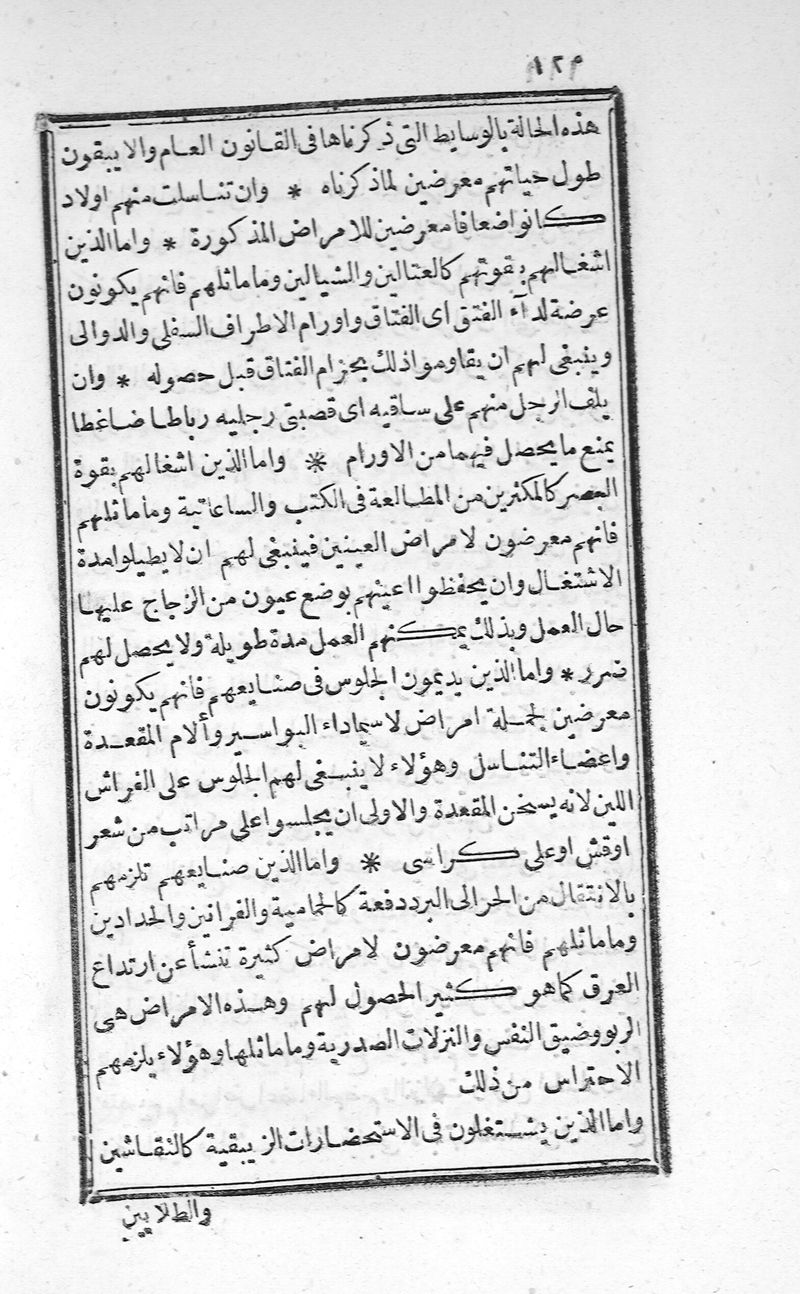 ١٢٩
هذه الحالة بالوسايط التى ذكرناها فى القانون العام والا يبقون
طول حياتهم معرضين لما ذكرناه * وان تناسلت منهم اولاد
كانوا ضعافا معرضين للامراض المذكورة * واما الذين
اشغالهم بقوتهم كالعتالين والشيالين وما ماثلهم فانهم يكونون
عرضة لدآء الفتق اى الفتاق واورام الاطراف السفلى والدوالى
وينبغى لهم ان يقاوموا ذلك بحزام الفتاق قبل حصوله * وان
يلف الرجل منهم على ساقيه اى قصبتى رجليه رباطا ضاغطا
يمنع ما يحصل فيهما من الاورام * واما الذين اشغالهم بقوة
البصر كالمكثرين من المطالعة فى الكتب والساعاتية وما ماثلهم
فانهم معرضون لامراض العينين فينبغى لهم ان لا يطيلوا مدة
الاشتغال وان يحفظوا اعينهم بوضع عيون من الزجاج عليها
حال العمل وبذلك يمكنهم العمل مدة طويلة ولا يحصل لهم
ضرر * واما الذين يديمون الجلوس فى صنايعهم فانهم يكونون
معرضين لجملة امراض لاسيما داء البواسير وألام المقعدة
واعضاء التناسل وهؤلاء لا ينبغى لهم الجلوس على الفراش
اللين لانه يسخن المقعدة والاولى ان يجلسوا على مراتب من شعر
اوقش او على كراسى * واما الذين صنايعهم تلزمهم
بالانتقال من الحر الى البرد دفعة كالحمامية والفرانين والحدادين
وما ماثلهم فانهم معرضون لامراض كثيرة تنشأ عن ارتداع
العرق كما هو كثير الحصول لهم وهذه الامراض هى
الربو وضيق النفس والنزلات الصدرية وما ماثلها وهؤلاء يلزمهم
الاحتراس من ذلك
واما الذين يشتغلون فى الاستحضارات الزيبقية كالنقاشين
والطلايين